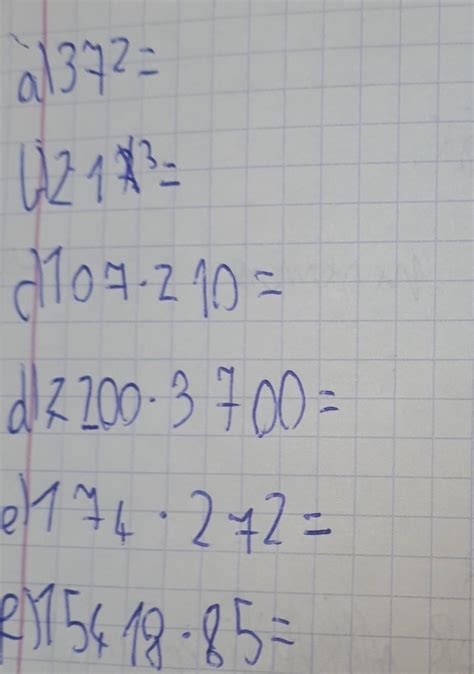 a) 37² =
b) 21³ =
c) 107 · 210 =
d) 2200 · 3700 =
e) 174 · 272 =
15418 · 85 =